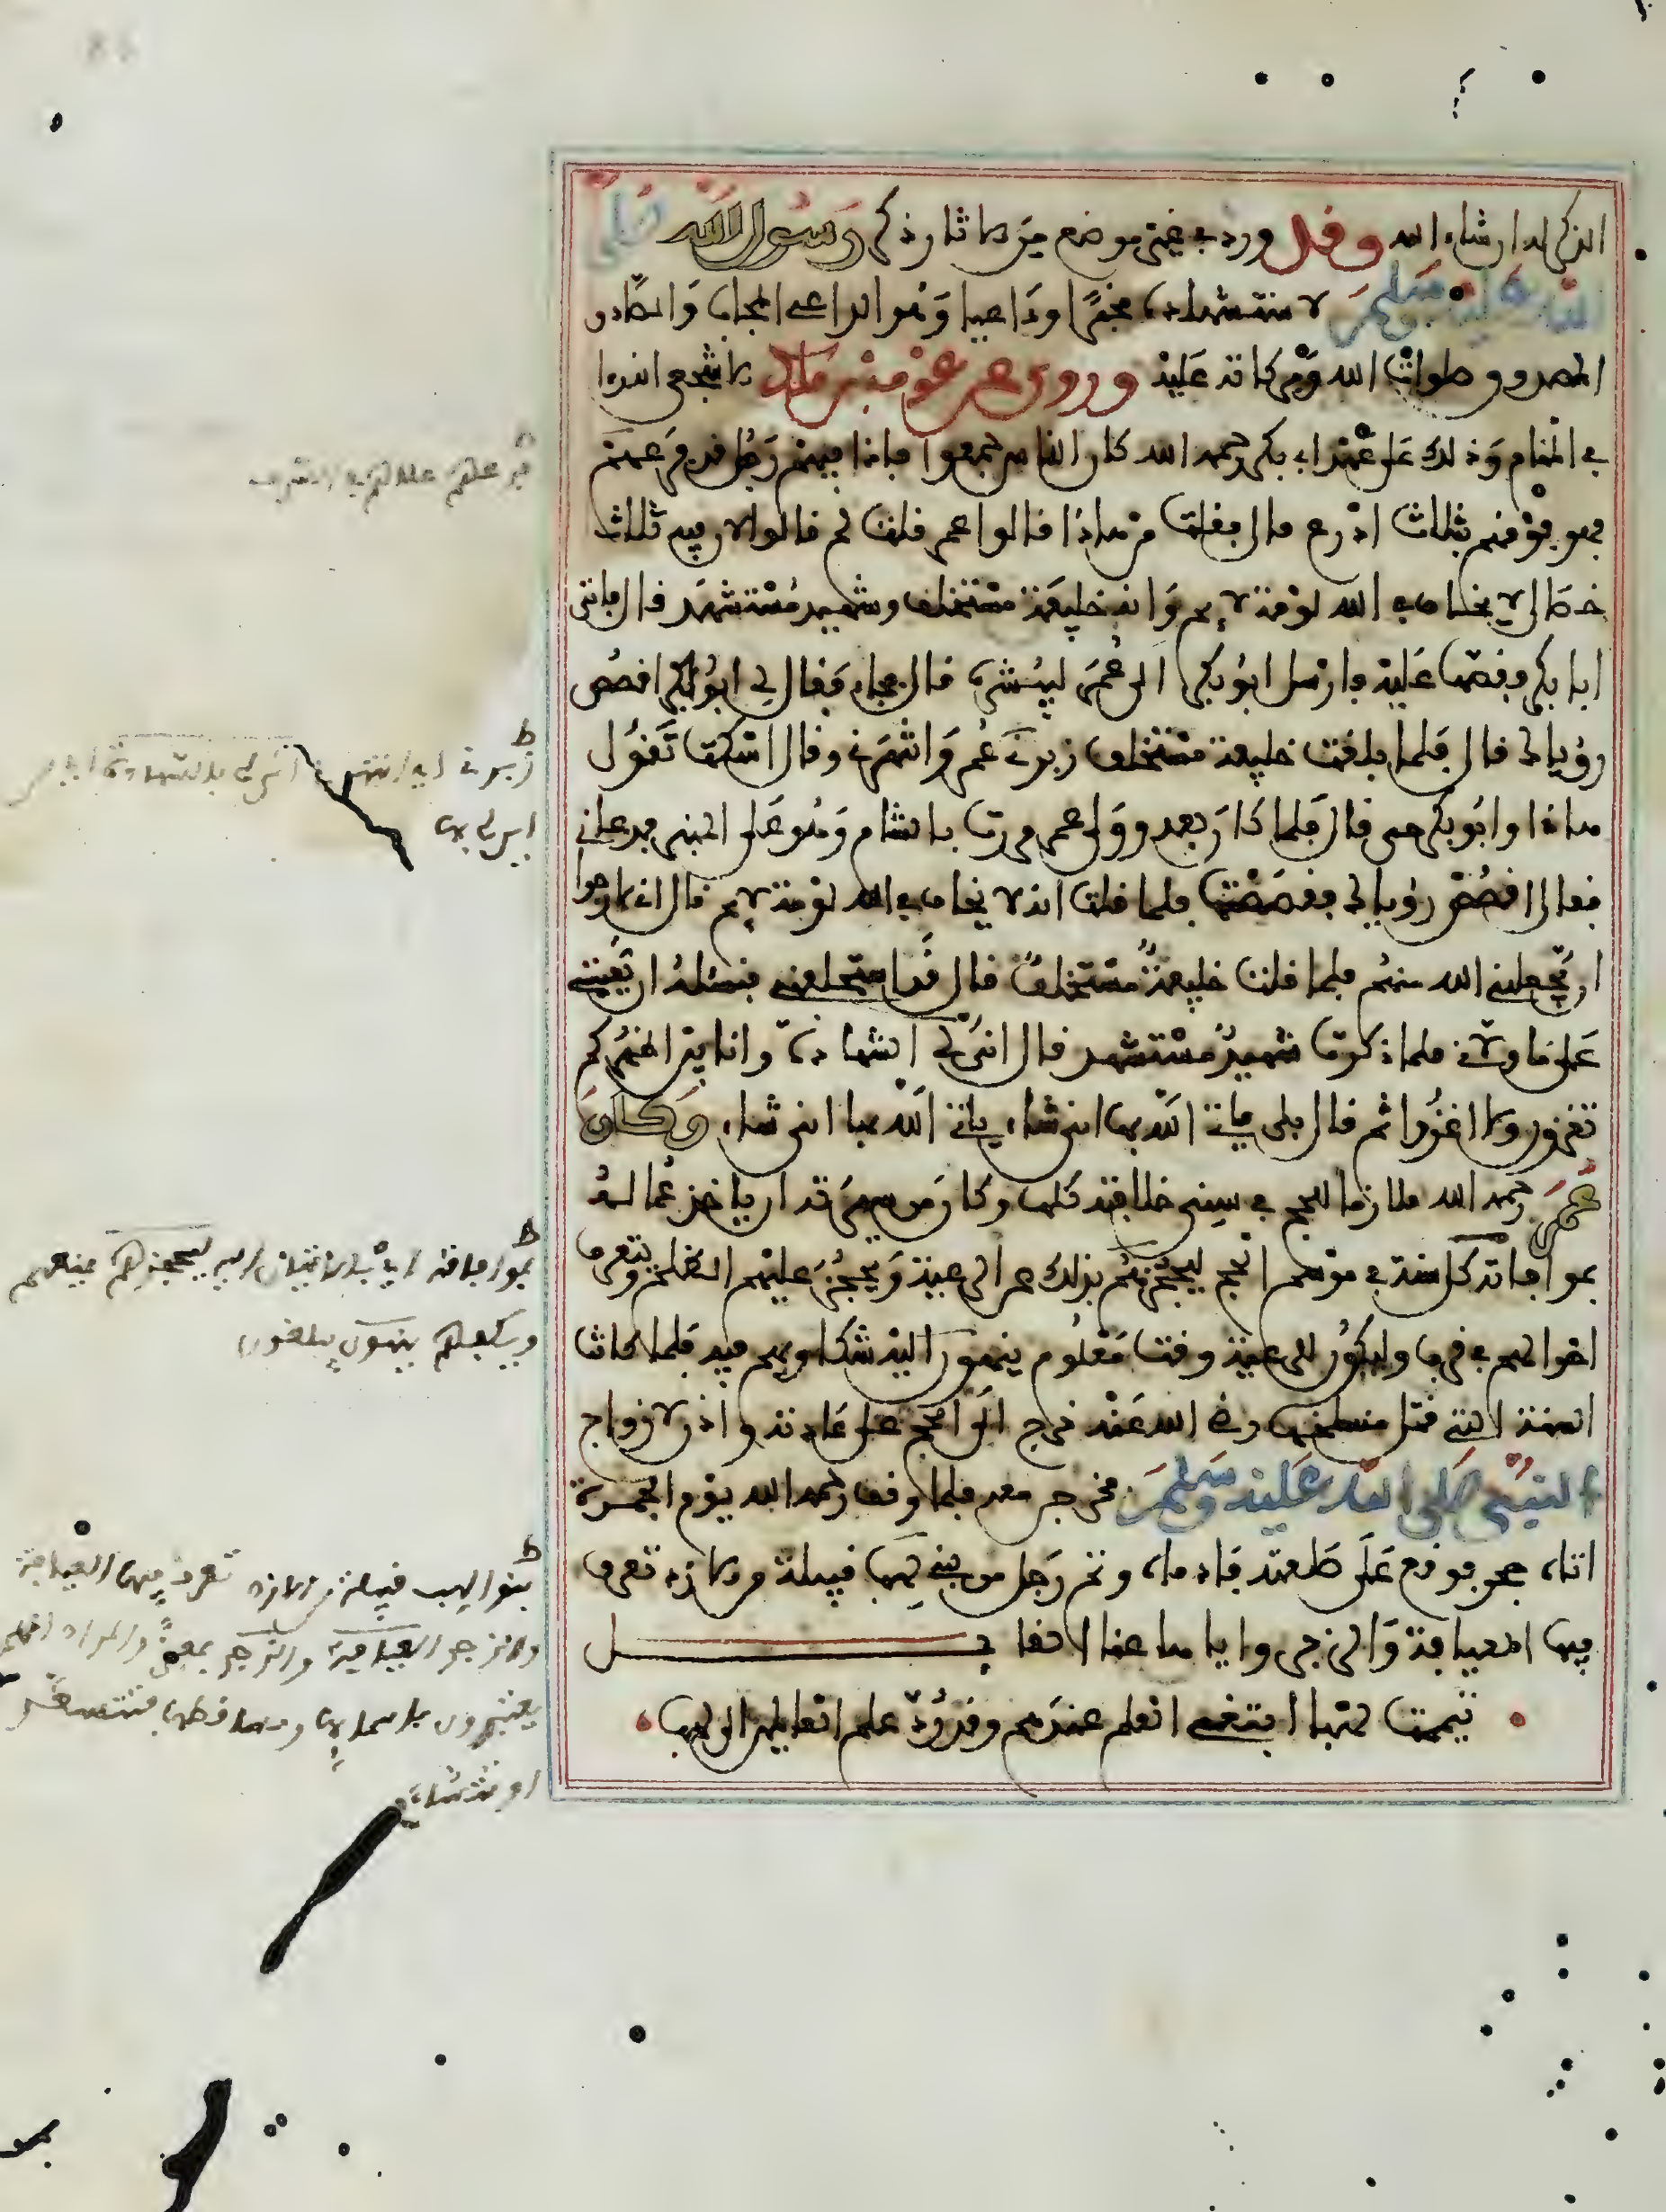 الذكر له ان شاء الله وقد ورد في غير ما موضع من الاثار ذكر رسول الله صلى
الله عليه وسلم لاستشهاده مخبرا وداعيا وهو الداعي المجاب والصادق
المصدوق صلوات الله وبركاته عليه وروي عن عوف بن مالك الاشجعي انه را
في المنام وذلك على عهد ابي بكر رحمه الله كان الناس جمعوا فاذا فيهم رجل قد فرعهم
فهو فوقهم بثلاث اذرع قال فقلت من هاذا قالوا عمر قلت لم قالوا لان فيه ثلاث
خصال لا يخاف في الله لومة لايم وانه خليفة مستخلف وشهيد مستشهد قال فاتى
ابا بكر فقصها عليه فارسل ابو بكر الى عمر ليبشره قال فجاء فقال لي ابو بكر اقصص
رؤياك قال فلما بلغت خليفة مستخلف زبرني عمر وانتهرني وقال اسكت تقول
هاذا وابو بكر حي قال فلما كان بعد وولي عمر مررت بالشام وهو على المنبر فدعاني
فقال اقصص رؤياك فقصصتها فلما قلت انه لا يخاف في الله لومة لايم قال اني لارجوا
ان يجعلني الله منهم فلما قلت خليفة مستخلف قال قد استخلفني فنسئله ان يعينني
على ما ولاني فلما ذكرت شهيد مستشهد قال انى لي الشهادة وانا بين اظهركم
تغزون ولا اغزوا ثم قال بلى ياتي الله بها انى شاء ياتي الله بها انى شاء وكان
عمر رحمه الله ملازما للحج في سني خلافته كلها وكان من سيرته ان ياخذ عماله
بموافاته كل سنة في موسم الحج ليحجزهم بذلك عن الرعية ويحجز عليهم الظلم ويتعرف
احوالهم في قرب وليكون للرعية وقت معلوم ينهون اليه شكاويهم فيه فلما كانت
السنة التي قتل منسلخها رضي الله عنه خرج الى الحج على عادته واذن لازواج
النبي صلى الله عليه وسلم فخرجن معه فلما وقف رحمه الله يوم الجمرة
اتاه حجر فوقع على صلعته فادماه وثم رجل من بني لهب قبيلة من الازد تعرف
فيها العيافة والزجر واياها عنا القايل
تيممت لهبا ابتغي العلم عندهم وقد رد علم العايفين الى لهب
ط
زبرني اي انتهرني
ط
بموافاته اي بالاتيان اليه ليحجزهم يمنعهم
ينهون يبلغون
ط
بنو لهب قبيلة من الازد تعرف فيها العيافة
والزجر العيافة والزجر بمعنى والمراد